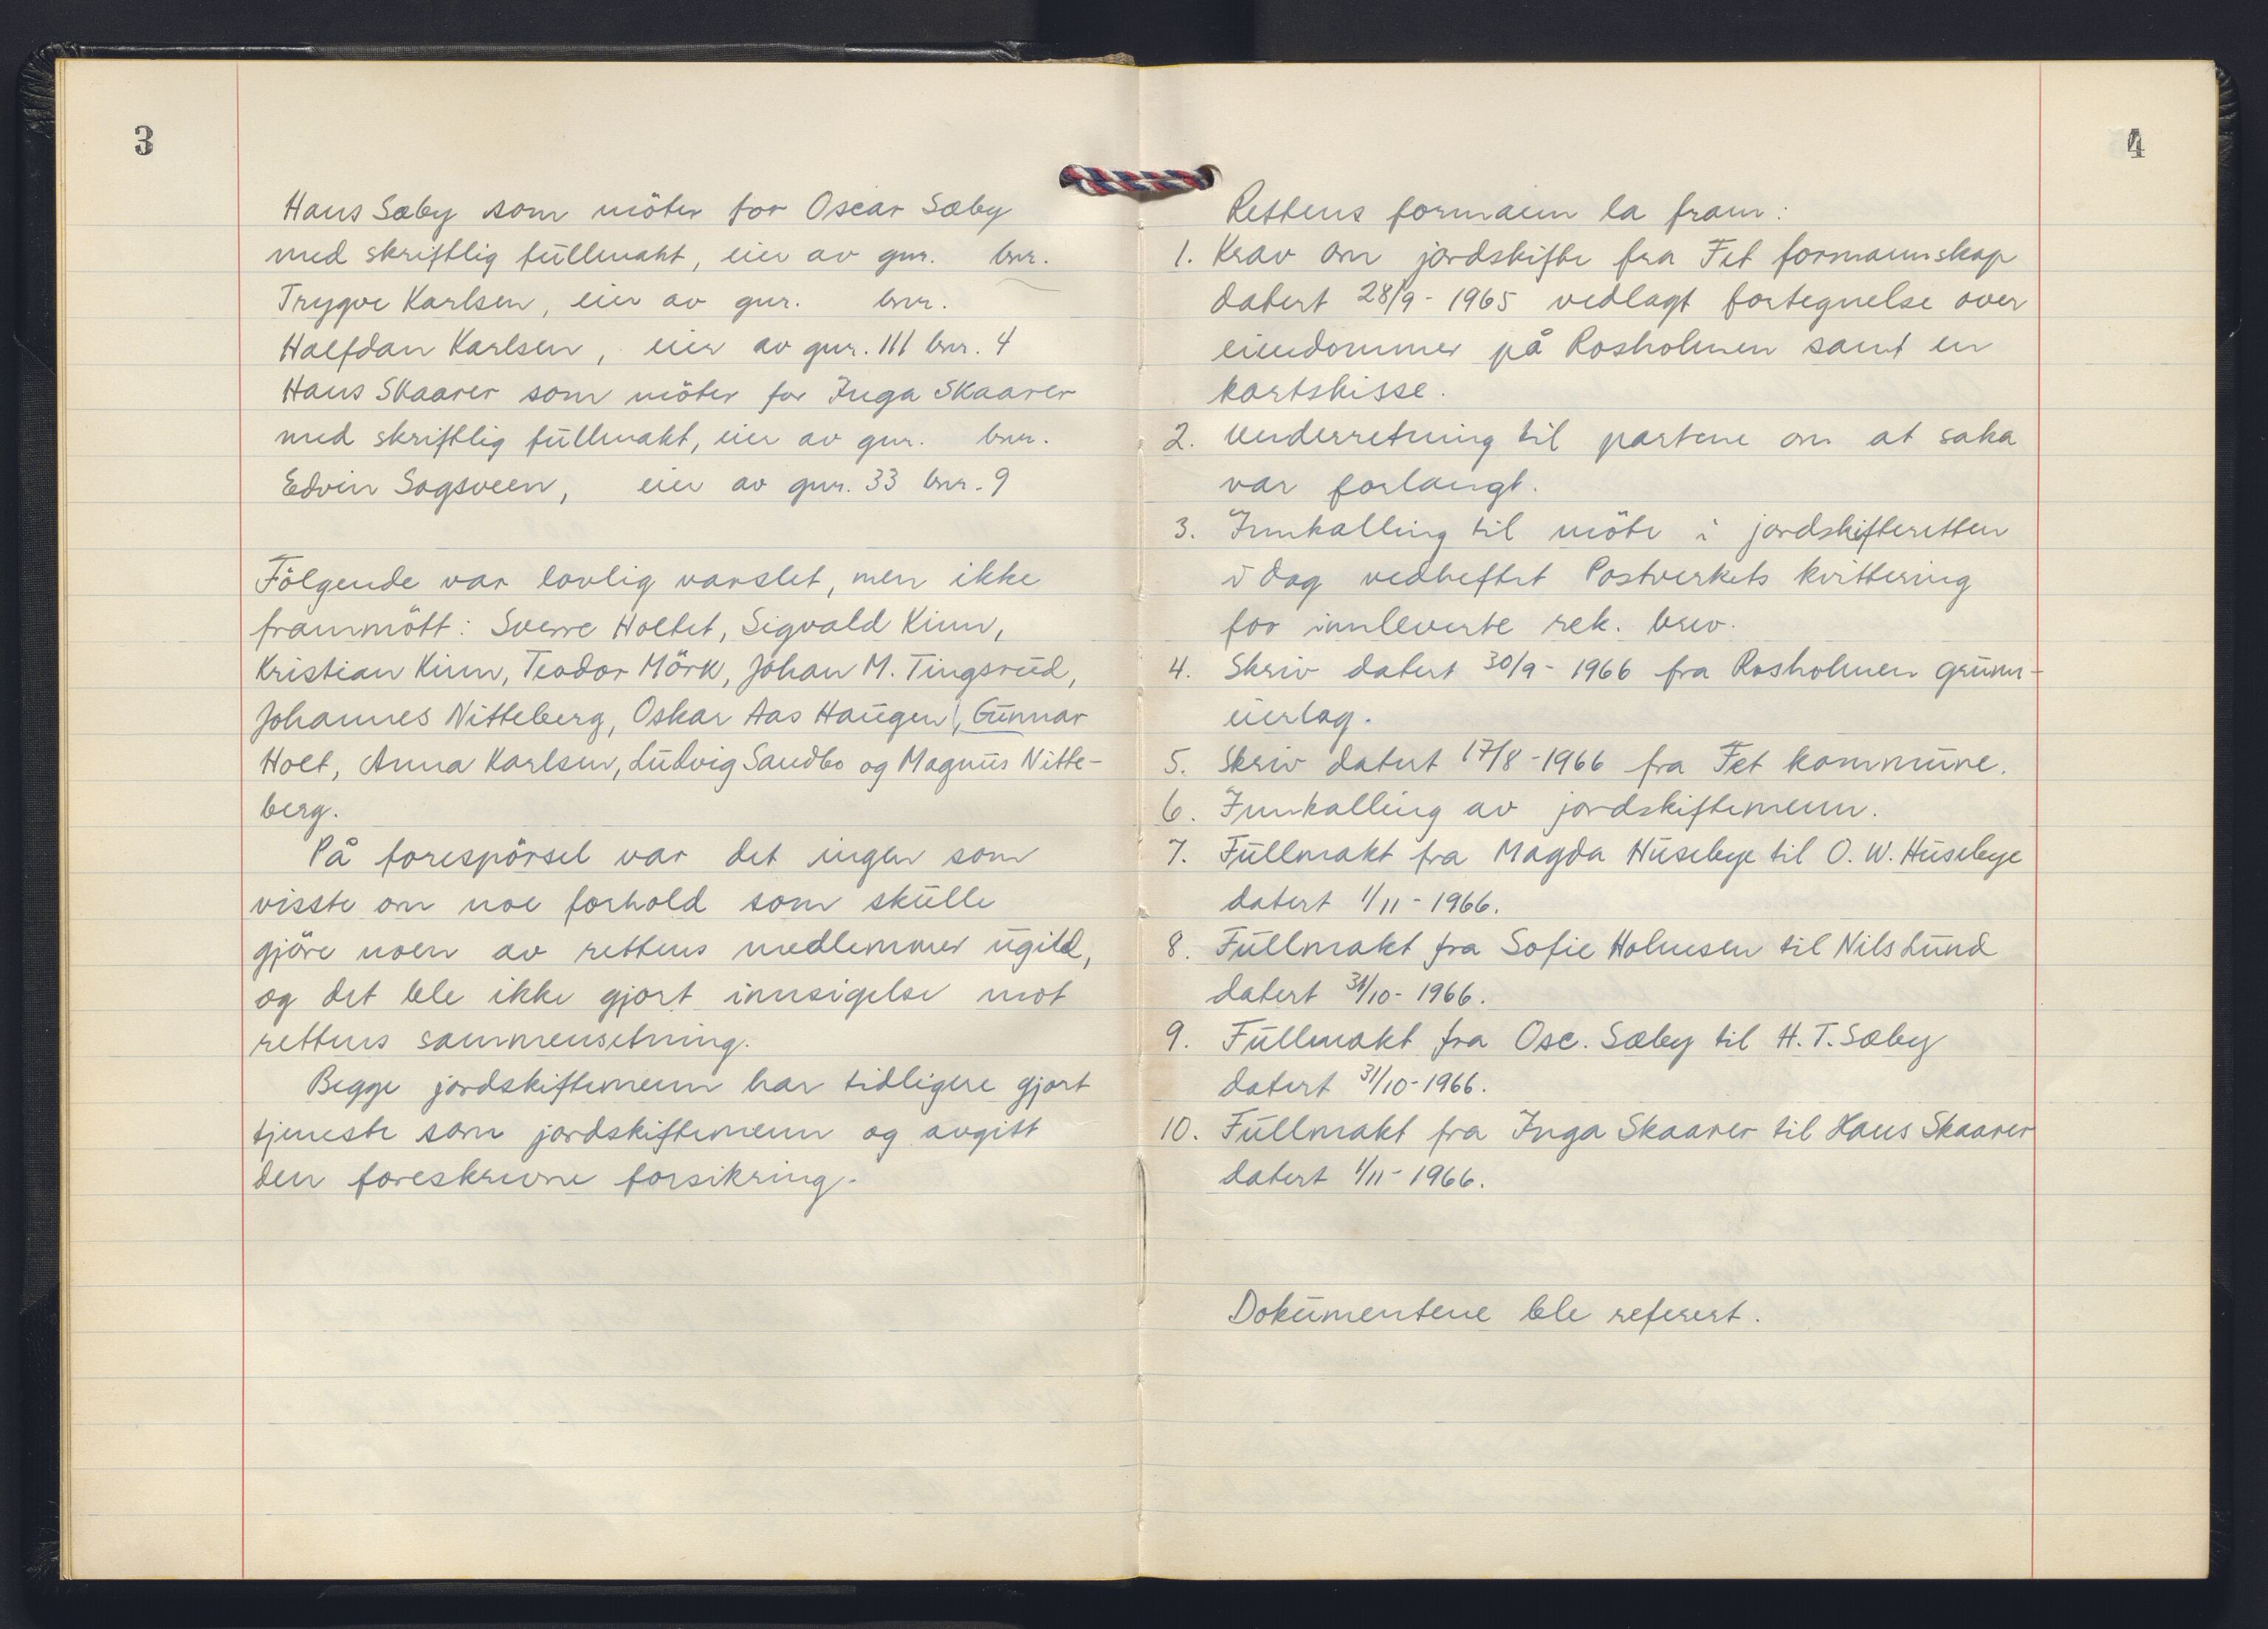 3
Hans Sæby som möter for Oscar Sæby
med skriftlig fullmakt, eier av gnr. bnr.
Trygve Karlsen, eier av gnr. bnr.
Halfdan Karlsen, eier av gnr. 111 bnr. 4
Hans Skaarer som möter for Inga Skaarer
med skriftlig fullmakt, eier av gnr. bnr.
Edvin Sagsveen, eier av gnr. 33 bnr. 9
Fölgende var lovlig varslet, men ikke
frammött: Sverre Holtet, Sigvald Kinn,
Kristian Kinn, Teodor Mörk, Johan M. Tingsrud,
Johannes Nitteberg, Oskar Aas Haugen, Gunnar
Holt, Anna Karlsen, Ludvig Sandbo og Magnus Nitte-
berg.
På forespörsel var det ingen som
visste om noe forhold som skulle
gjöre noen av rettens medlemmer ugild,
og det ble ikke gjort innsigelse mot
rettens sammensetning.
Begge jordskiftemenn har tidligere gjort
tjeneste som jordskiftemenn og avgitt
den foreskrevne forsikring.
4
Rettens formann la fram:
1. Krav om jordskifte fra Fet formannskap
datert 28/9 - 1965 vedlagt fortegnelse over
eiendommer på Rosholmen samt en
kartskisse.
2. Underretning til partene om at saka
var forlangt.
3. Innkalling til möte i jordskifteretten
i dag vedheftet Postverkets kvittering
for innleverte rek. brev.
4. Skriv datert 30/9 - 1966 fra Rosholmen grunn-
eierlag.
5. Skriv datert 17/8 - 1966 fra Fet kommune.
6. Innkalling av jordskiftemenn.
7. Fullmakt fra Magda Husebye til O. W. Husebye
datert 1/11 - 1966.
8. Fullmakt fra Sofie Holmsen til Nils Lund
datert 31/10 - 1966.
9. Fullmakt fra Osc. Sæby til H. T. Sæby
datert 31/10 - 1966.
10. Fullmakt fra Inga Skaarer til Hans Skaarer
datert 1/11 - 1966.
Dokumentene ble referert.